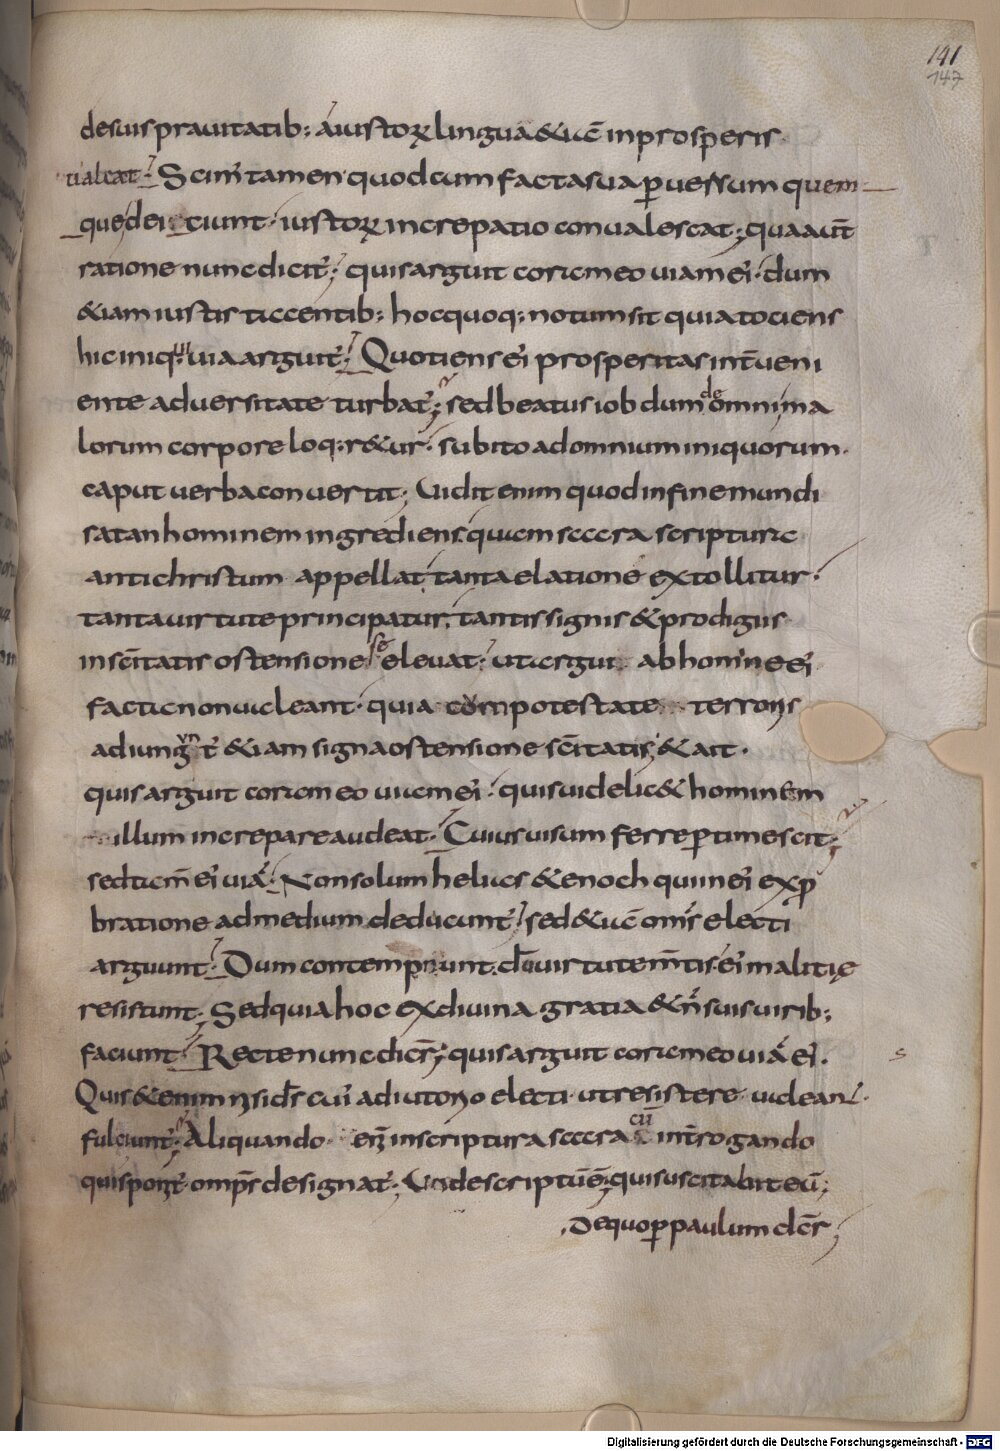 141
147
desuis prauitatib; a iustoꝝ lingua & uē in prosperis
ualeat; Scim̄ tamen quod cum facta sua ꝑuersum quem
que deiciunt. iustoꝝ increpatio conualescat; qua aut̄
ratione nunc dicit̄; quis arguit coram eo uiam ei᷒. dum
& iam iustis tacentib; hoc quoq; notum sit quia tociens
hic iniq᷒ uia arguit̄; Quotiens ei᷒ prosperitas int̄ueni
ente aduersitate turbat̄; sed beatus iob dum de omnium ma
lorum corpore loq;r&ur. subito ad omnium iniquorum.
caput uerba conuertit; Uidit enim quod in fine mundi
satan hominem ingrediens. quem sacra scriptura
antichristum appellat tanta elatione extollitur.
tanta uirtute principatur, tantis signis & prodigiis
in sc̄itatis ostensione se eleuat. ut argui ab homine ei᷒
facta non ualeant. quia cum potestate terroris
adiungit̄ & iam signa ostensione sc̄itatis; & ait.
quis arguit coram eo uiam ei᷒. quis uidelic& hominem
illum increpare audeat. Cuius uisum ferre ptimescit;
sed tam̄ ei᷒ uiā. Non solum helias & enoch qui in ei᷒ exp
bratione ad medium deducunt̄; sed & uē om̄s electi
arguunt. Dum contempnunt. & uirtute m̄tis ei᷒ malitię
resistunt; Sed quia hoc ex diuina gratia & n̄ suis uirib;
faciunt. Recte nunc dicr̄; quis arguit coram eo uiā ei᷒.
Quis & enim nisi ds̄ cui᷒ adiutorio electi ut resistere ualeant.
fulciunt̄; Aliquando eni in scriptura sacra cū introgando
quis ponit̄ omps̄ designat̄; Unde scriptū ē; quis suscitabit eū;
De quo p paulum dc̄r;
s
Digitalisierung gefördert durch die Deutsche Forschungsgemeinschaft - DFG